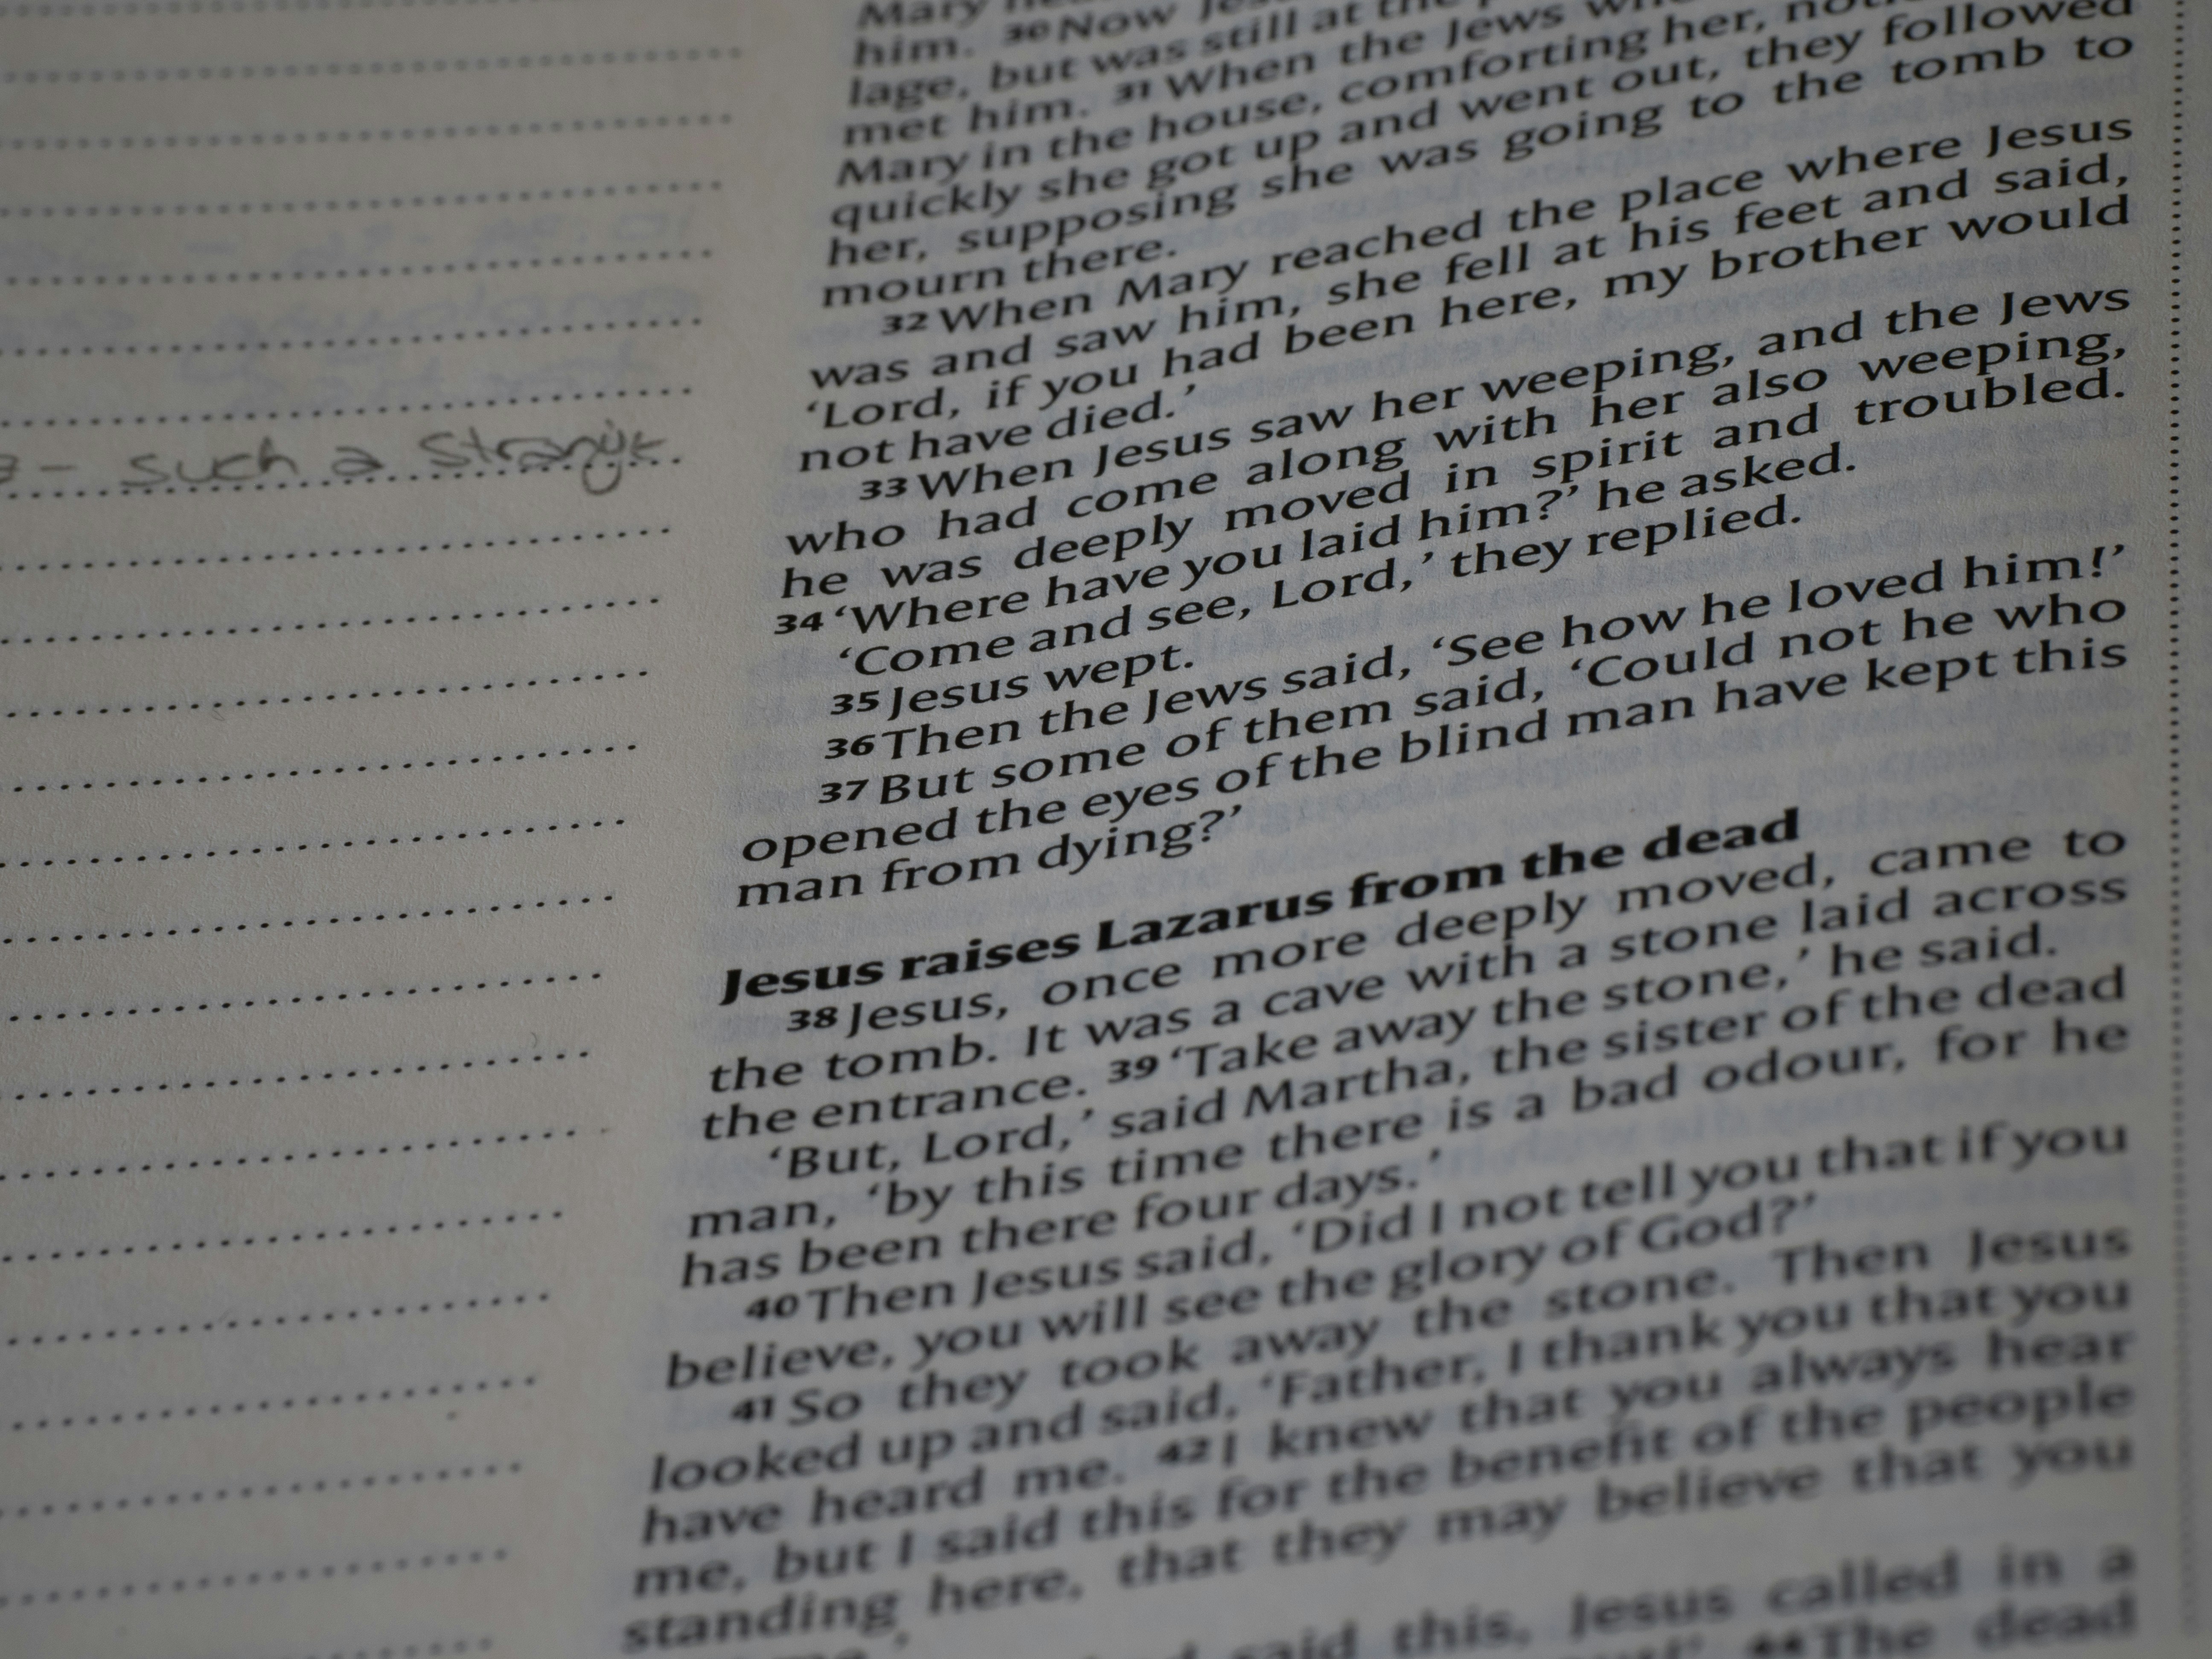 - such a strange
Mary
him. 30 Now
lage, but was still at the
met him. 31 When the Jews
Mary in the house, comforting her,
quickly she got up and went out, they followed
her, supposing she was going to the tomb to
mourn there.
32 When Mary reached the place where Jesus
was and saw him, she fell at his feet and said,
‘Lord, if you had been here, my brother would
not have died.’
33 When Jesus saw her weeping, and the Jews
who had come along with her also weeping,
he was deeply moved in spirit and troubled.
34 ‘Where have you laid him?’ he asked.
‘Come and see, Lord,’ they replied.
35 Jesus wept.
36 Then the Jews said, ‘See how he loved him!’
37 But some of them said, ‘Could not he who
opened the eyes of the blind man have kept this
man from dying?’
Jesus raises Lazarus from the dead
38 Jesus, once more deeply moved, came to
the tomb. It was a cave with a stone laid across
the entrance. 39 ‘Take away the stone,’ he said.
‘But, Lord,’ said Martha, the sister of the dead
man, ‘by this time there is a bad odour, for he
has been there four days.’
40 Then Jesus said, ‘Did I not tell you that if you
believe, you will see the glory of God?’
41 So they took away the stone. Then Jesus
looked up and said, ‘Father, I thank you that you
have heard me. 42 I knew that you always hear
me, but I said this for the benefit of the people
standing here, that they may believe that you
said this, Jesus called in a
44 The dead